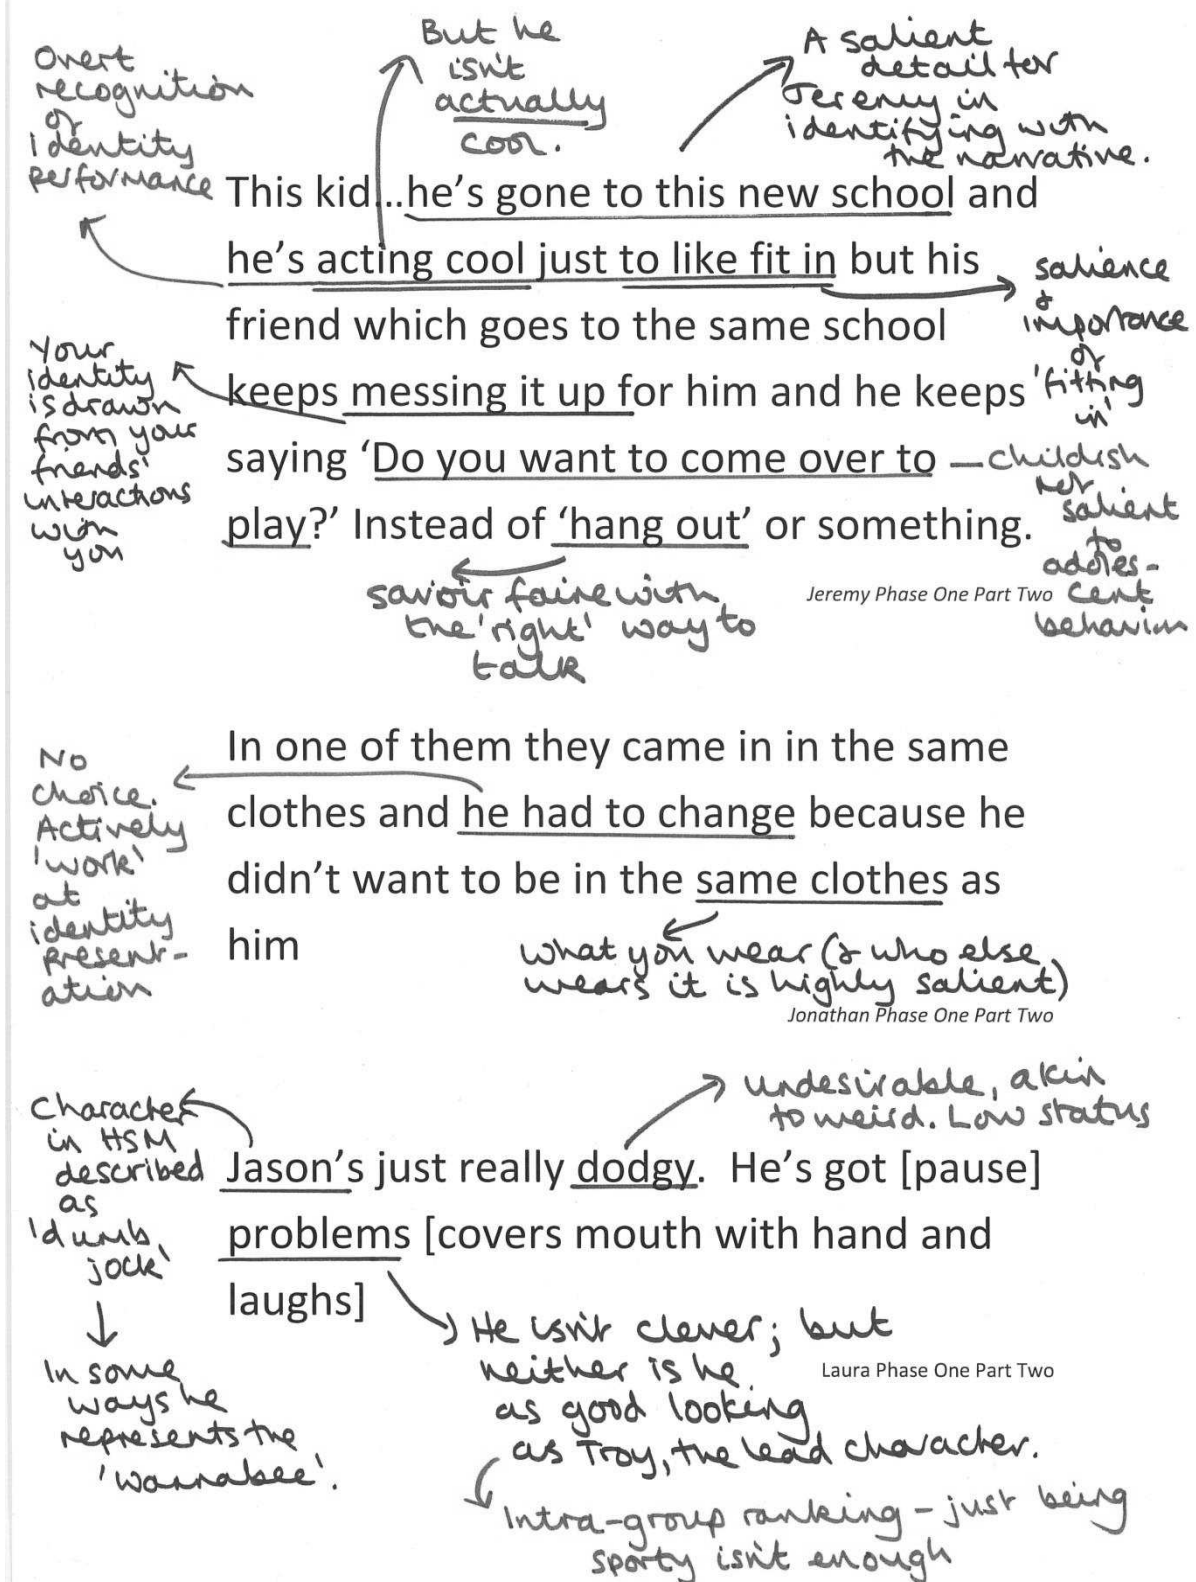 Overt
recognition
of
identity
performance
But he
isn't
actually
cool.
A salient
detail for
Jeremy in
identifying with
the narrative.
This kid...he's gone to this new school and
he's acting cool just to like fit in but his
friend which goes to the same school
keeps messing it up for him and he keeps
saying 'Do you want to come over to
play?' Instead of 'hang out' or something.
Your
identity
is drawn
from your
friends'
interactions
with
you
salience
&
importance
of
'fitting
in'
childish
not
salient
to
adoles-
cent
behaviour
savoir faire with
the 'right' way to
talk
Jeremy Phase One Part Two
No
choice.
Actively
'work'
at
identity
present-
ation
In one of them they came in in the same
clothes and he had to change because he
didn't want to be in the same clothes as
him
what you wear (& who else
wears it is highly salient)
Jonathan Phase One Part Two
Character
in HSM
described
as
'dumb
jock'
In some
ways he
represents the
'wannabee'.
undesirable, akin
to weird. Low status
Jason's just really dodgy. He's got [pause]
problems [covers mouth with hand and
laughs]
He isn't clever; but
neither is he
as good looking
as Troy, the lead character.
Laura Phase One Part Two
Intra-group ranking - just being
sporty isn't enough